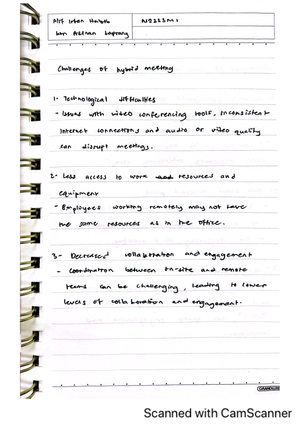 Challenges of hybrid meeting
1- Technological difficulties
- Issues with video conferencing tools, inconsistent
internet connections and audio or video quality
can disrupt meetings.
2- Less access to work resources and
equipment
- Employees working remotely may not have
the same resources as in the office.
3- Decreased collaboration and engagement
- Coordination between on-site and remote
teams can be challenging, leading to lower
levels of collaboration and engagement.
Scanned with CamScanner